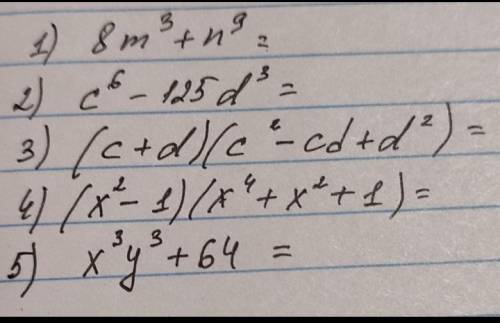 1) 8m³ + n⁹ =
2) c⁶ - 125d³ =
3) (c + d)(c² - cd + d²) =
4) (x² - 1)(x⁴ + x² + 1) =
5) x³y³ + 64 =